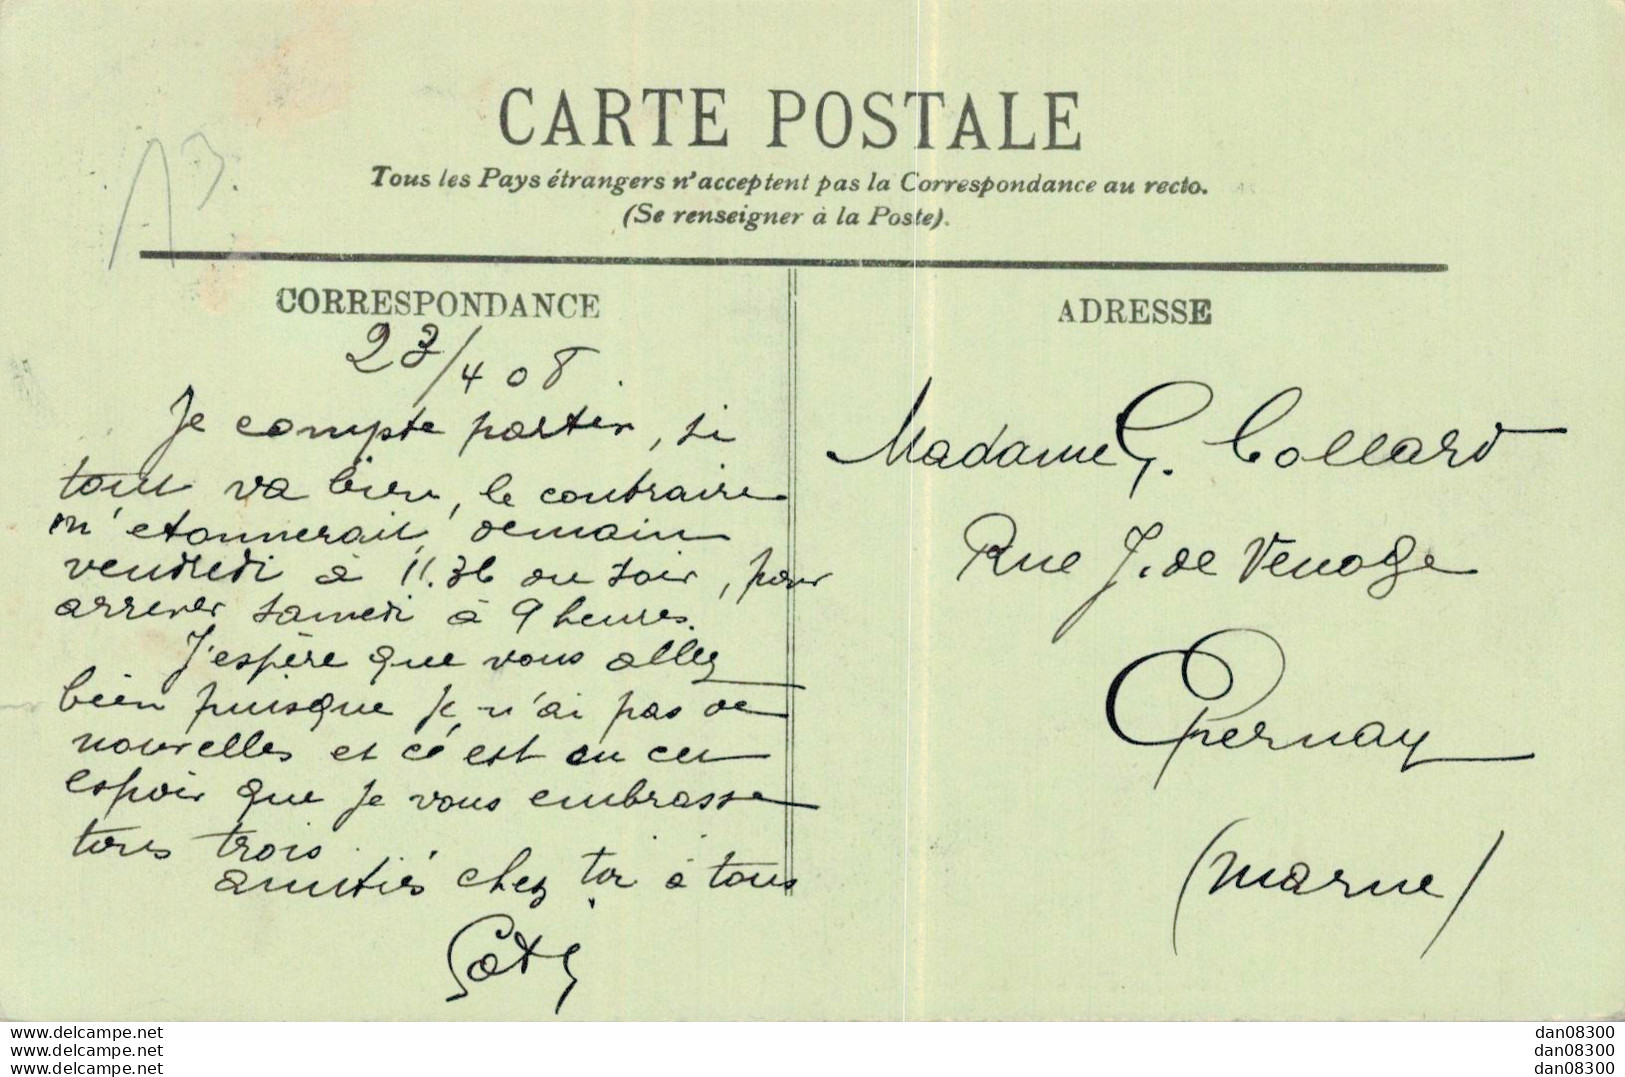 A3.
CARTE POSTALE
Tous les Pays étrangers n'acceptent pas la Correspondance au recto.
(Se renseigner à la Poste).
CORRESPONDANCE
23/4 08.
Je compte partir, si
tout va bien, le contraire
m'etonnerait, demain
vendredi à 11.36 du soir, pour
arriver samedi à 9 heures.
J'espère que vous allez
bien puisque je n'ai pas de
nouvelles et cé est en cet
espoir que je vous embrasse
tous trois.
amitiés chez toi à tous
ADRESSE
Madame G. Collard
Rue J. de Venoge
Epernay
(Marne)
www.delcampe.net
www.delcampe.net
www.delcampe.net
dan08300
dan08300
dan08300